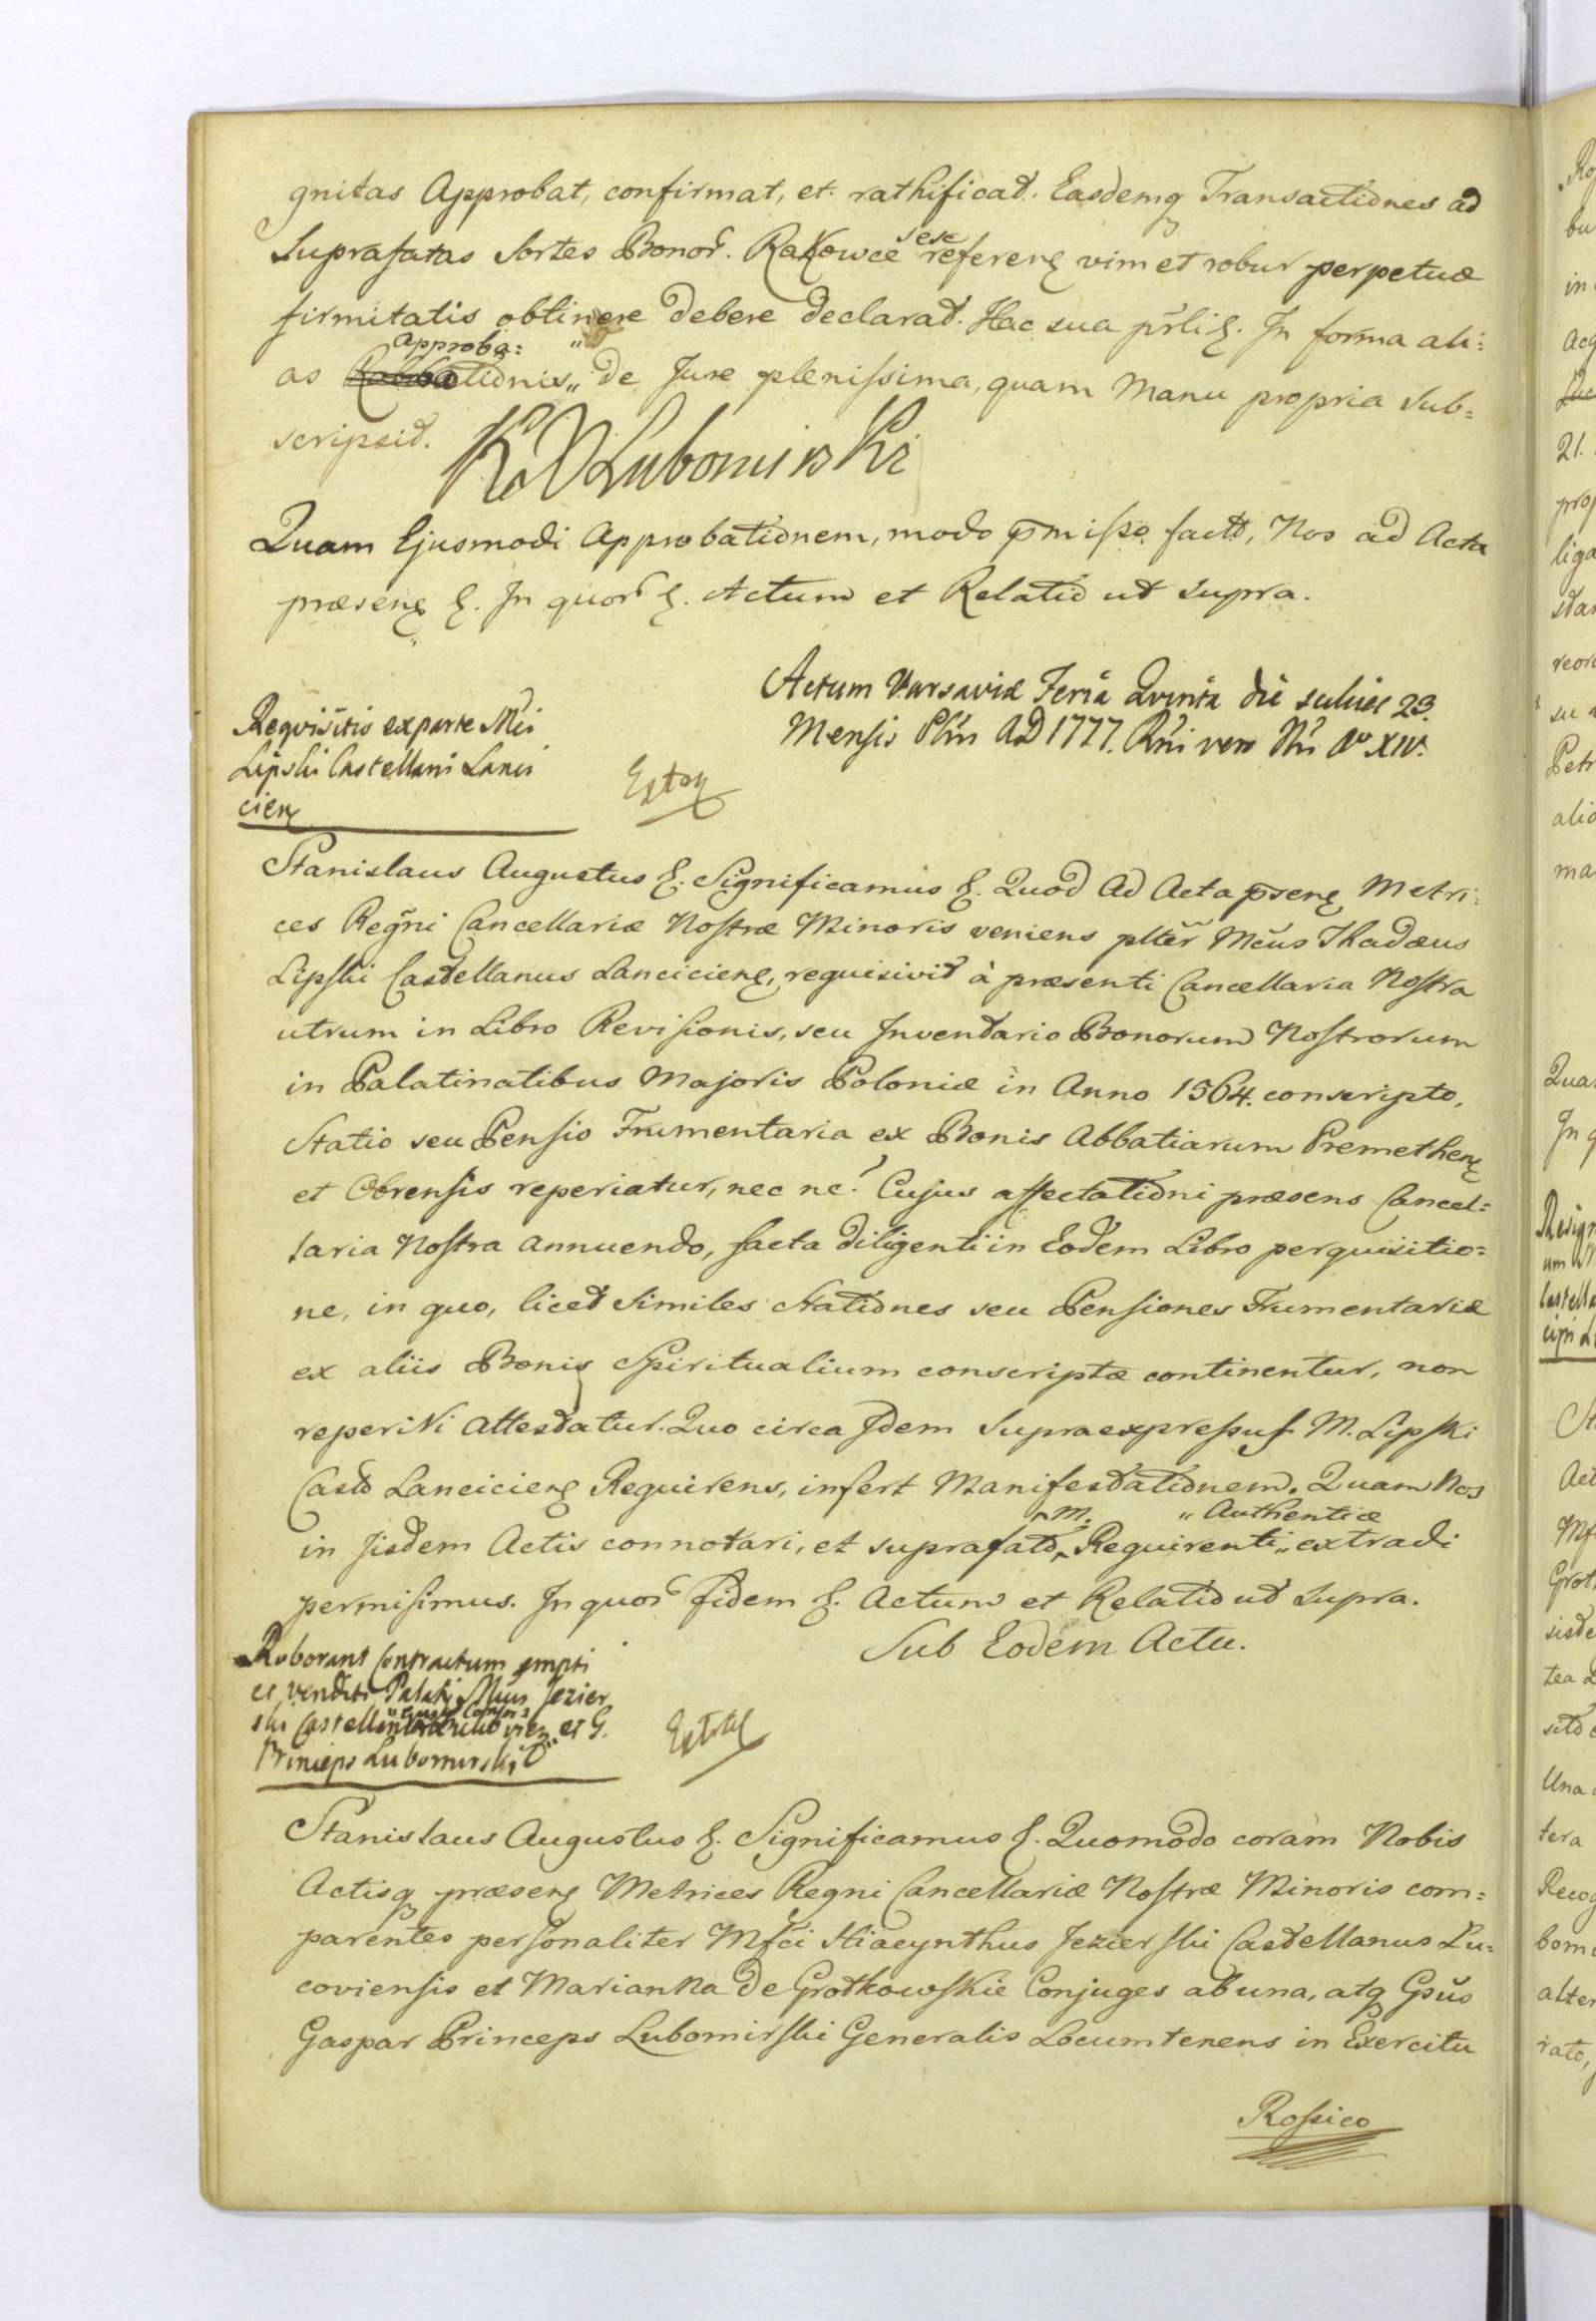 gnitas Approbat, confirmat, et rathificat. Easdemq Transactiones ad
Suprafatas Sortes Bonor. Rakowce sese referenς vim et robur perpetuæ
firmitatis obtinere debere declarat. Hac sua prli ξ. In forma ali=
as Approba=tionis de Jure plenissima, quam Manu propria Sub=
scripsit.
K Lubomirski
Quam Ejusmodi Approbationem, modo pmisso factã, Nos ad Acta
præsenς ξ. In quor ξ. Actum et Relatio ut supra.
Actum Varsaviæ Feria Qvinta die scilicet 23.
Mensis AD 1777. Rñi vero Ñri Aº XIV.
Reqvisitio ex parte Mci
Lipski Castellani Lanci
cienς
Stanislaus Augustus ξ. Significamus ξ. Quod Ad Acta psenς Metri=
ces Regñi Cancellariæ Nostræ Minoris veniens pltēr Mcūs Thadæus
Lipski Castellanus Lancicienς, requisivit à præsenti Cancellaria Nostra
utrum in Libro Revisionis, seu Inventario Bonorum Nostrorum
in Palatinatibus Majoris Poloniæ in Anno 1564. conscripto,
Statio seu Pensio Frumentaria ex Bonis Abbatiarum Premethenς
et Obrensis reperiatur, nec ne? Cujus affectationi præsens Cancel=
laria Nostra annuendo, facta diligenti in Eodem Libro perquisitio=
ne, in quo, licet Similes Stationes seu Pensiones Frumentariæ
ex aliis Bonis Spiritualium conscriptæ continentur, non
reperiri attestatur. Quo circa Idem Supraexpressus M. Lipski
Castõ Lancicienς Requirens, infert Manifestationem. Quam Nos
in Iisdem Actis connotari, et suprafatõ M. Requirenti Authentice extradi
permisimus. In quor fidem ξ. Actum et Relatio ut Supra.
Sub Eodem Actu.
Roborant Contractum empti
et venditi Palatij Jezier
ski et G.
Princeps Lubomirski
Stanislaus Augustus ξ. Significamus ξ. Quomodo coram Nobis
Actisq præsenς Metrices Regni Cancellariæ Nostræ Minoris com=
parentes personaliter Mfci Hiacynthus Jezierski Castellanus Lu=
coviensis et Marianna de Grotkowskie Conjuges ab una, atq Gsūs
Gaspar Princeps Lubomirski Generalis Locumtenens in Exercitu
Rossico